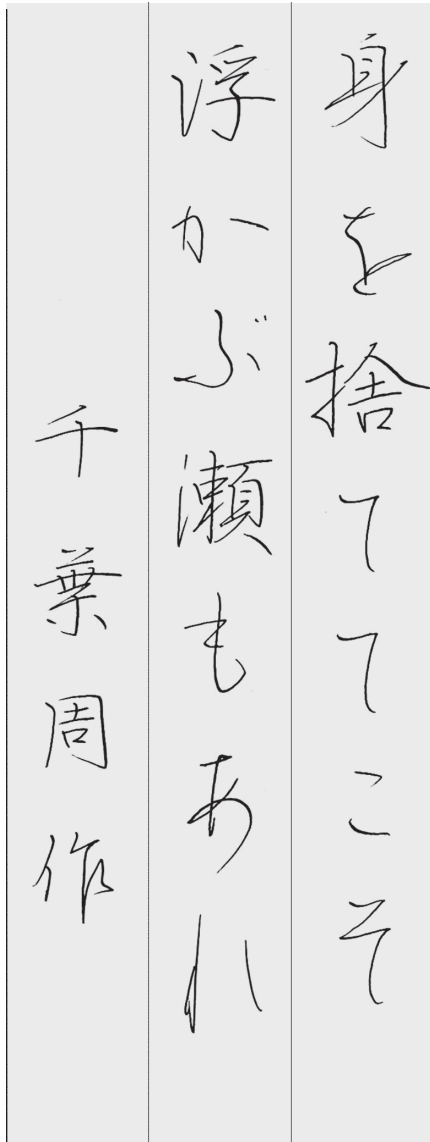 身を捨ててこそ
浮かぶ瀬もあれ
千葉周作